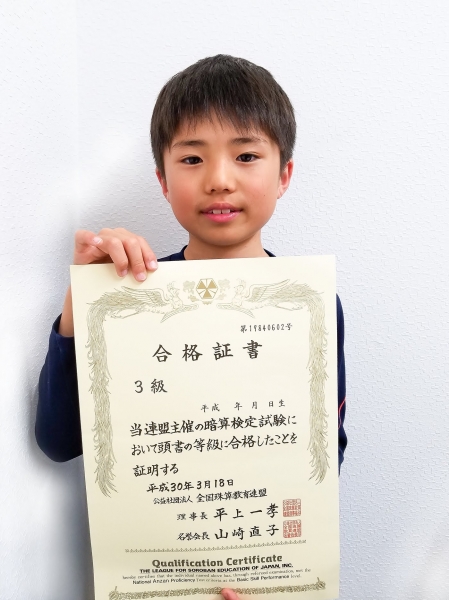 第19840602号
合格証書
3級
平成 年 月 日生
当連盟主催の暗算検定試験に
おいて頭書の等級に合格したことを
証明する
平成30年3月18日
公益社団法人 全国珠算教育連盟
理事長 平上一孝
名誉会長 山崎直子
Qualification Certificate
THE LEAGUE FOR SOROBAN EDUCATION OF JAPAN, INC.
hereby certifies that the individual named above has, through referred examination, met the
National Anzan Proficiency Test criteria at the Basic Skill Performance level.